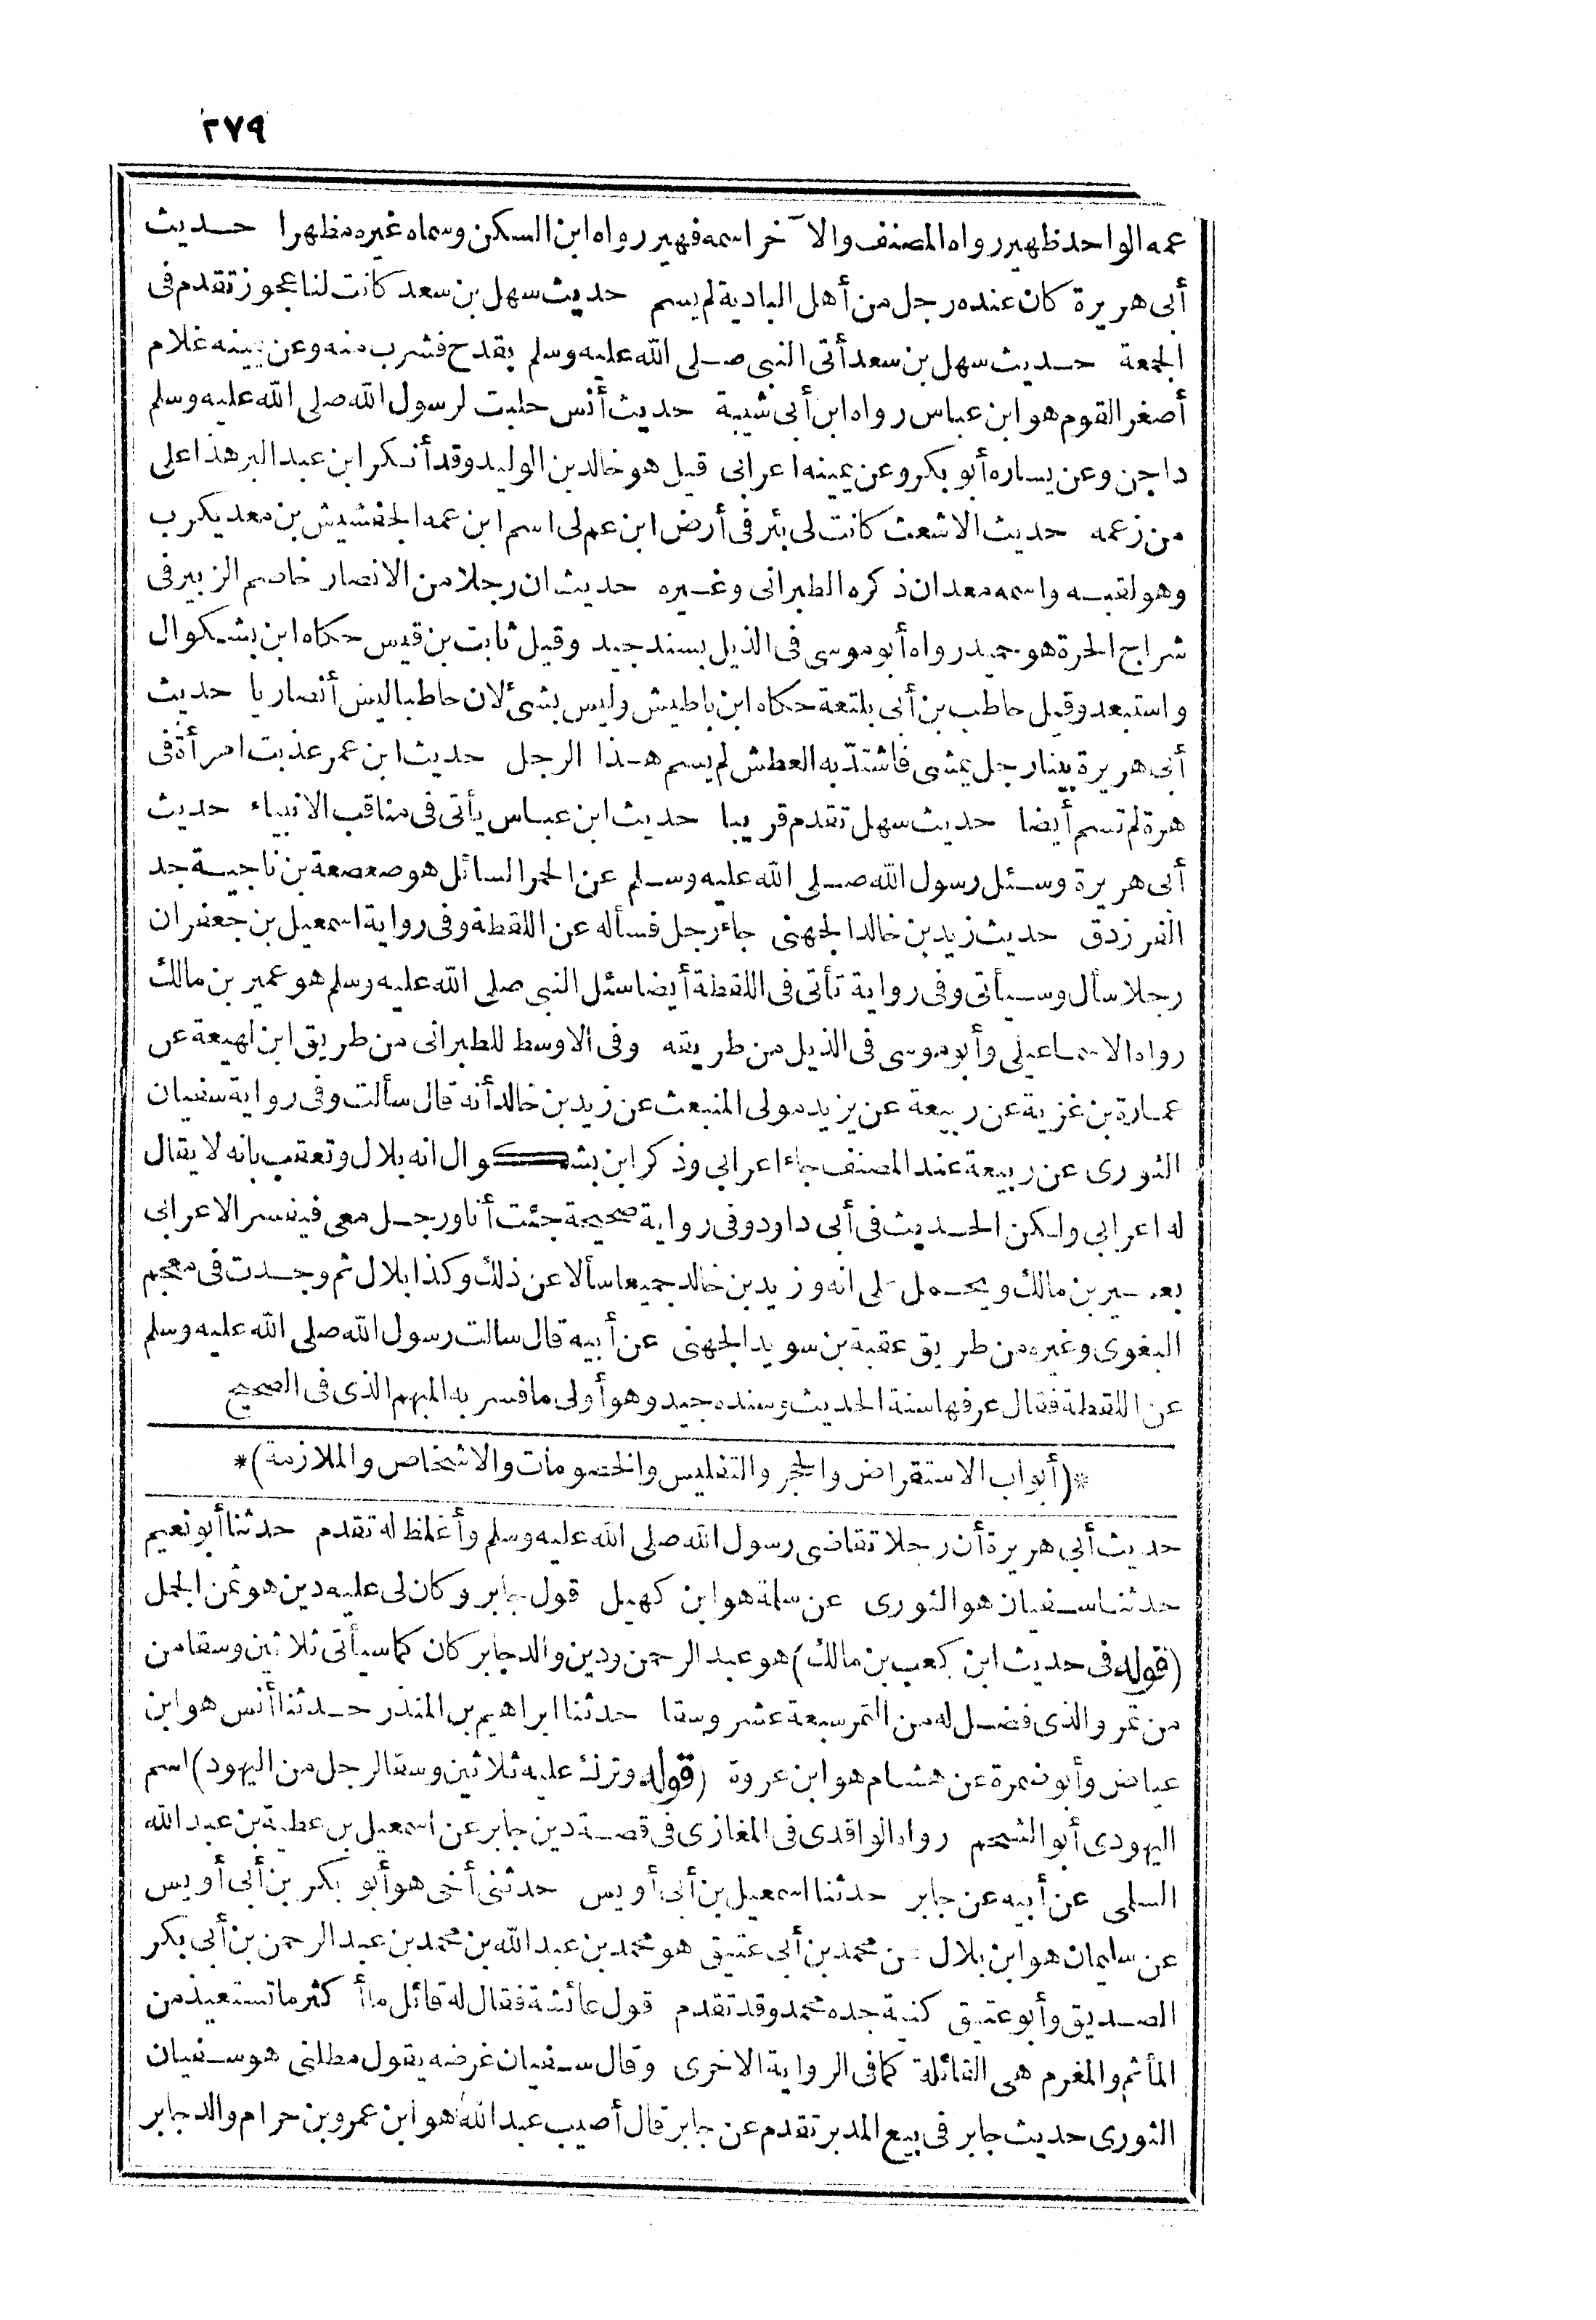 ٢٧٩
عمه الواحد ظهير رواه المصنف والآخر اسمه فهير رواه ابن السكن وسماه غيره مظهرا حديث
أبى هريرة كان عنده رجل من أهل البادية لم يسم حديث سهل بن سعد كانت لنا عجوز تقدم فى
الجمعة حديث سهل بن سعد أتى النبى صلى الله عليه وسلم بقدح فشرب منه وعن يمينه غلام
أصغر القوم هو ابن عباس رواه ابن أبى شيبة حديث أنس حلبت لرسول الله صلى الله عليه وسلم
داجن وعن يساره أبو بكر وعن يمينه اعرابى قيل هو خالد بن الوليد وقد أنكر ابن عبد البر هذا على
من زعمه حديث الاشعث كانت لى بئر فى أرض ابن عم لى اسم ابن عمه الجفشيش بن معد يكرب
وهو لقبه واسمه معدان ذكره الطبرانى وغيره حديث ان رجلا من الانصار خاصم الزبير فى
شراج الحرة هو حميد رواه أبو موسى فى الذيل بسند جيد وقيل ثابت بن قيس حكاه ابن بشكوال
واستبعد وقيل حاطب بن أبى بلتعة حكاه ابن باطيش وليس بشئ لان حاطبا ليس أنصاريا حديث
أبى هريرة بينا رجل يمشى فاشتدّ به العطش لم يسم هذا الرجل حديث ابن عمر عذبت امرأة فى
هرة لم تسم أيضا حديث سهل تقدم قريبا حديث ابن عباس يأتى فى مناقب الانبياء حديث
أبى هريرة وسئل رسول الله صلى الله عليه وسلم عن الحمر السائل هو صعصعة بن ناجية جد
الفرزدق حديث زيد بن خالد الجهنى جاء رجل فسأله عن اللقطة وفى رواية اسمعيل بن جعفر ان
رجلا سأل وسيأتى وفى رواية تأتى فى اللقطة أيضا سئل النبى صلى الله عليه وسلم هو عمير بن مالك
رواه الاسماعيلى وأبو موسى فى الذيل من طريقه وفى الاوسط للطبرانى من طريق ابن لهيعة عن
عمارة بن غزية عن ربيعة عن يزيد مولى المنبعث عن زيد بن خالد أنه قال سألت وفى رواية سفيان
الثورى عن ربيعة عند المصنف جاء اعرابى وذكر ابن بشكوال انه بلال وتعقب بانه لا يقال
له اعرابى ولكن الحديث فى أبى داود وفى رواية صحيحة جئت أنا ورجل معى فيفسر الاعرابى
بعمير بن مالك ويحمل على انه وزيد بن خالد جميعا سألا عن ذلك وكذا بلال ثم وجدت فى معجم
البغوى وغيره من طريق عقبة بن سويد الجهنى عن أبيه قال سالت رسول الله صلى الله عليه وسلم
عن اللقطة فقال عرفها سنة الحديث وسنده جيد وهو أولى ما فسر به المبهم الذى فى الصحيح
*(أبواب الاستقراض والحجر والتفليس والخصومات والاشخاص والملازمة)*
حديث أبى هريرة أن رجلا تقاضى رسول الله صلى الله عليه وسلم وأغلظ له تقدم حدثنا أبو نعيم
حدثنا سفيان هو الثورى عن سلمة هو ابن كهيل قول جابر وكان لى عليه دين هو ثمن الجمل
(قوله فى حديث ابن كعب بن مالك) هو عبد الرحمن ودين والد جابر كان كما سيأتى ثلاثين وسقا من
من تمر والذى فضل له من التمر سبعة عشر وسقا حدثنا ابراهيم بن المنذر حدثنا أنس هو ابن
عياض وأبو ضمرة عن هشام هو ابن عروة (قوله وترك عليه ثلاثين وسقا لرجل من اليهود) اسم
اليهودى أبو الشحم رواه الواقدى فى المغازى فى قصة دين جابر عن اسمعيل بن عطية بن عبد الله
السلمى عن أبيه عن جابر حدثنا اسمعيل بن أبى أويس حدثنى أخى هو أبو بكر بن أبى أويس
عن سليمان هو ابن بلال عن محمد بن أبى عتيق هو محمد بن عبد الله بن محمد بن عبد الرحمن بن أبى بكر
الصديق وأبو عتيق كنية جده محمد وقد تقدم قول عائشة فقال له قائل ما أكثر ما تستعيذ من
المأثم والمغرم هى القائلة كما فى الرواية الاخرى وقال سفيان عرضه يقول مطلنى هو سفيان
الثورى حديث جابر فى بيع المدبر تقدم عن جابر قال أصيب عبد الله هو ابن عمرو بن حرام والد جابر